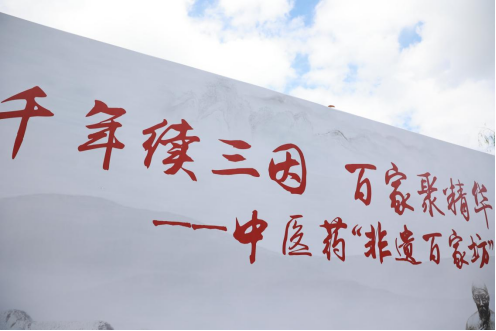 千年续三因 百家聚精华
——中医药“非遗百家坊”